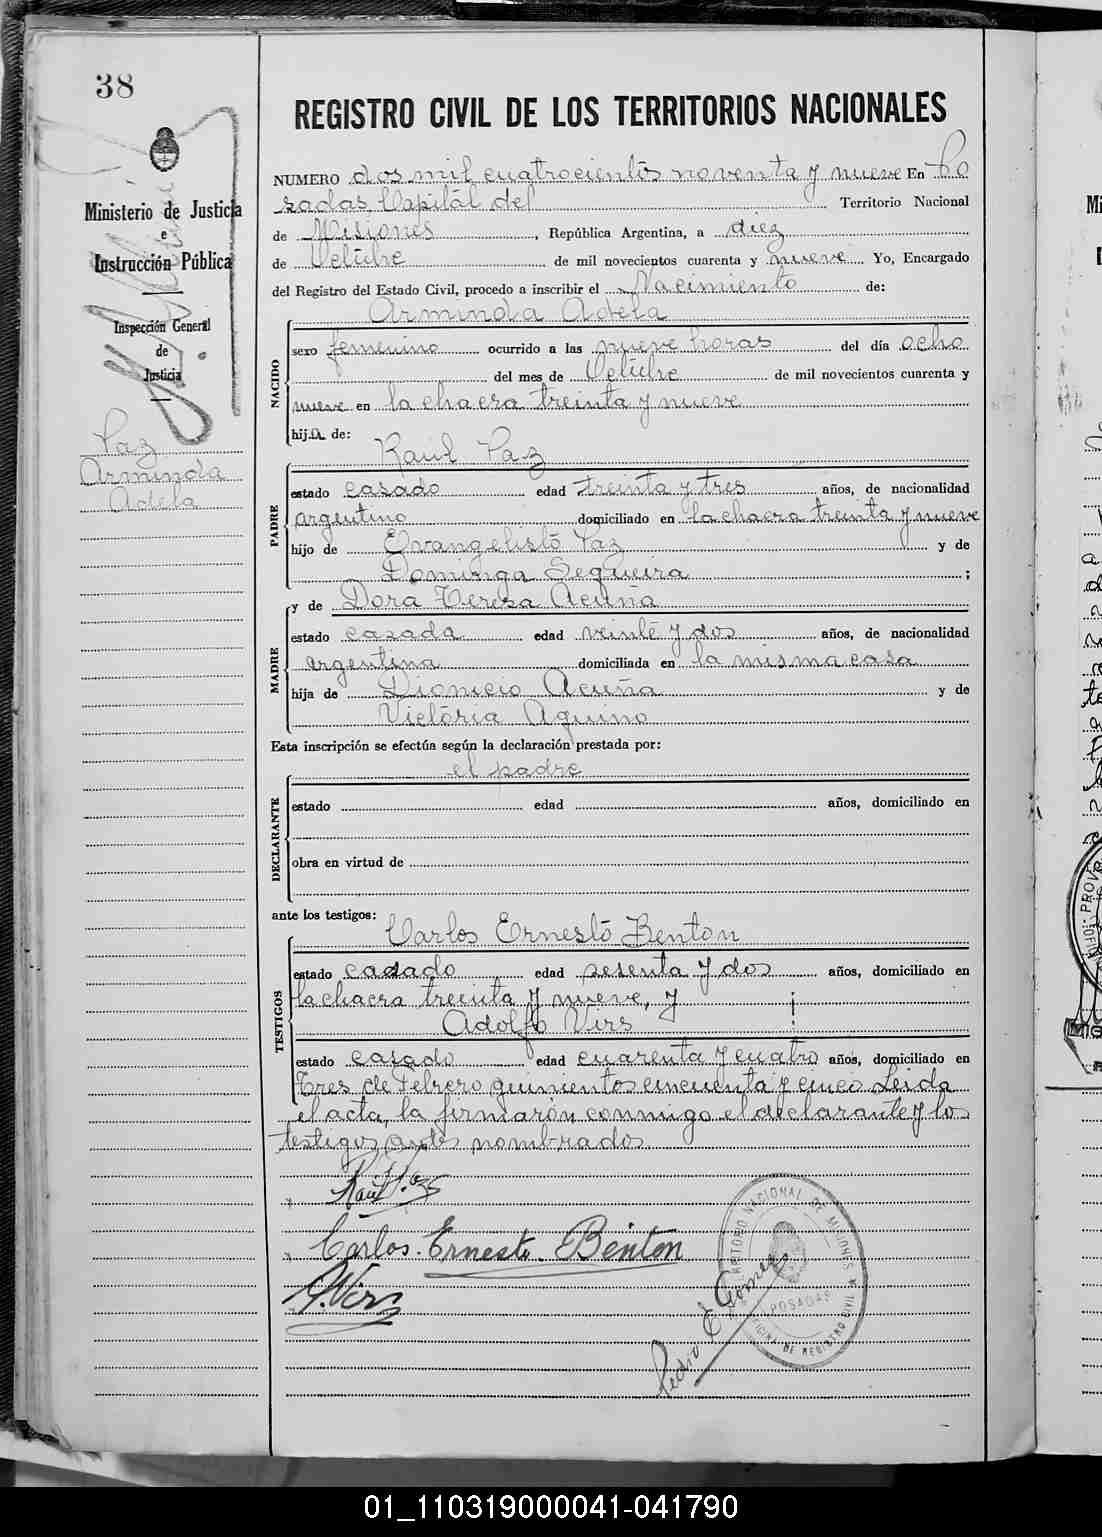 38
Ministerio de Justicia
e
Instrucción Pública
Inspección General
de
Justicia
Paz
Arminda
Adela
REGISTRO CIVIL DE LOS TERRITORIOS NACIONALES
NUMERO dos mil cuatrocientos noventa y nueve En Po
sadas, Capital del Territorio Nacional
de Misiones, República Argentina, a diez
de Octubre de mil novecientos cuarenta y nueve Yo, Encargado
del Registro del Estado Civil, procedo a inscribir el Nacimiento de:
Arminda Adela
NACIDO
sexo femenino ocurrido a las nueve horas del día ocho
del mes de Octubre de mil novecientos cuarenta y
nueve en la chacra treinta y nueve
hija de:
Raúl Paz
PADRE
estado casado edad treinta y tres años, de nacionalidad
argentino domiciliado en la chacra treinta y nueve
hijo de Evangelisto Paz y de
Dominga Sequeira ;
y de Dora Teresa Acuña
MADRE
estado casada edad veinte y dos años, de nacionalidad
argentina domiciliada en la misma casa
hija de Dionicio Acuña y de
Victoria Aquino
Esta inscripción se efectúa según la declaración prestada por:
el padre
DECLARANTE
estado edad años, domiciliado en
obra en virtud de
ante los testigos:
Carlos Ernesto Benton
TESTIGOS
estado casado edad sesenta y dos años, domiciliado en
la chacra treinta y nueve, y
Adolfo Virs
estado casado edad cuarenta y cuatro años, domiciliado en
Tres de Febrero quinientos cincuenta y cinco Leida
el acta, la firmaron conmigo el declarante y los
testigos antes nombrados
Raúl Paz
Carlos Ernesto Benton
A. Virs
Pedro E Gomez
TERRITORIO NACIONAL DE MISIONES
POSADAS
OFICINA DE REGISTRO CIVIL
01_110319000041-041790